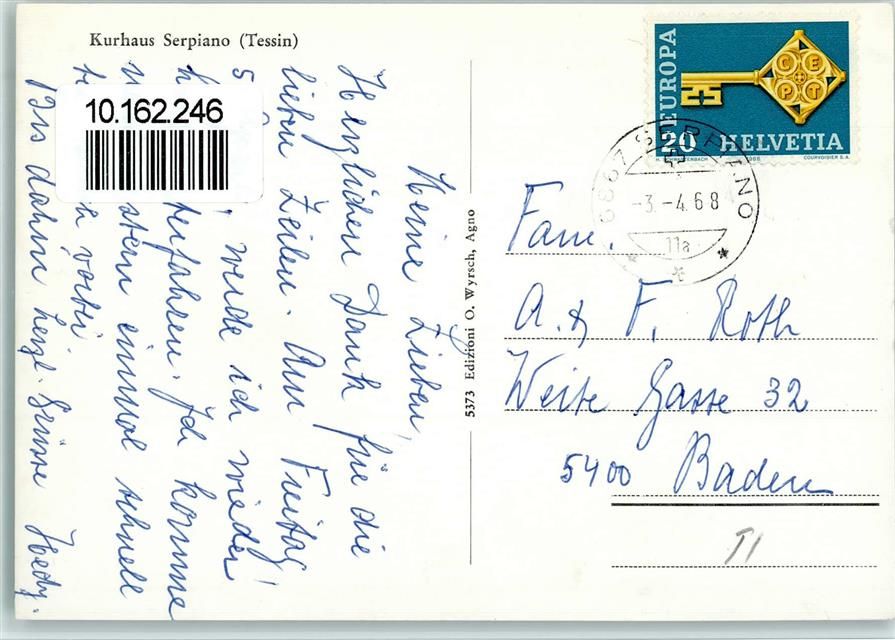 Kurhaus Serpiano (Tessin)
10.162.246
Meine Lieben,
Herzlichen Dank für die
lieben Zeilen. Am Freitag
5 werde ich wieder
Ich komme
einmal schnell
vorbei.
Bis dahin herzl. Grüsse Hedy.
5373 Edizioni O. Wyrsch, Agno
EUROPA
CEPT
20 HELVETIA
COURVOISIER S.A.
6867 SERPIANO
-3.-4.68
11a
Fam.
A. & F. Roth
Weite Gasse 32
5400 Baden
TI